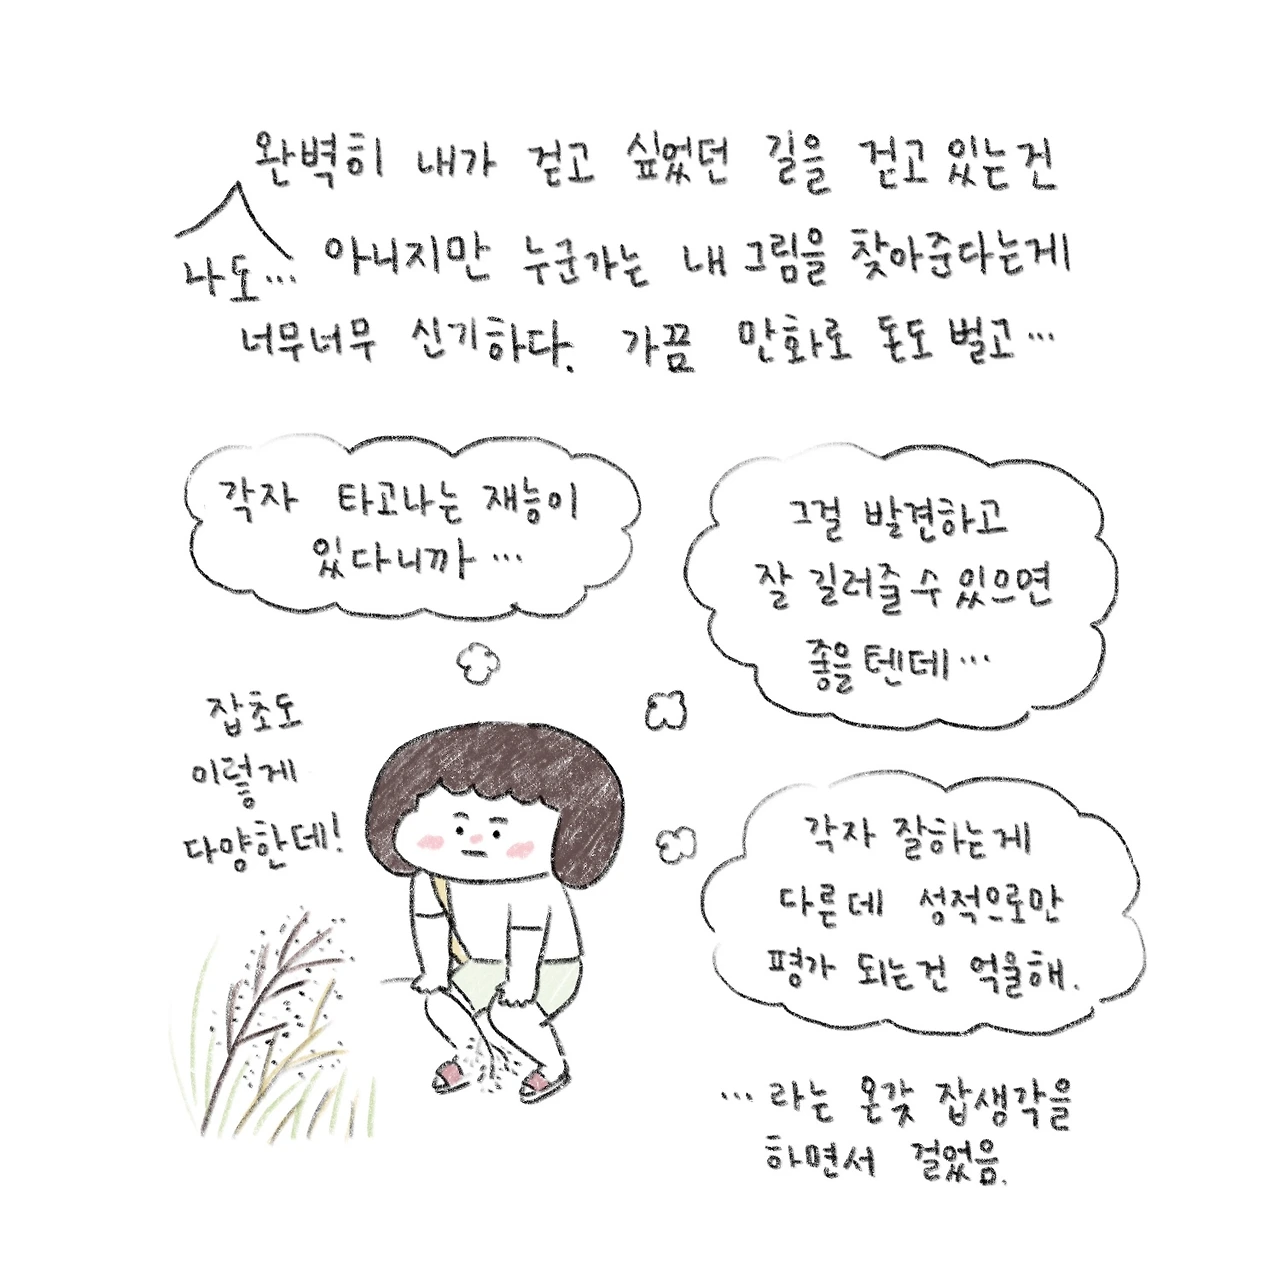 완벽히 내가 걷고 싶었던 길을 걷고 있는건
나도… 아니지만 누군가는 내 그림을 찾아준다는게
너무너무 신기하다. 가끔 만화로 돈도 벌고…
각자 타고나는 재능이
있다니까…
그걸 발견하고
잘 길러줄 수 있으면
좋을텐데…
잡초도
이렇게
다양한데!
각자 잘하는게
다른데 성적으로만
평가 되는건 억울해.
…라는 온갖 잡생각을
하면서 걸었음.